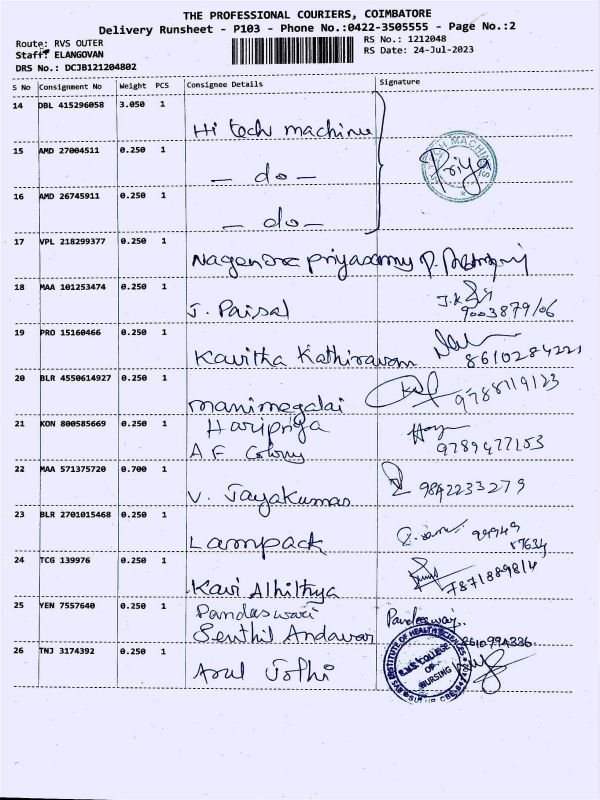 THE PROFESSIONAL COURIERS, COIMBATORE
Delivery Runsheet - P103 - Phone No.:0422-3505555 - Page No.:2
Route: RVS OUTER
RS No.: 1212048
Staff: ELANGOVAN
RS Date: 24-Jul-2023
DRS No.: DCJB121204802
S No Consignment No Weight PCS Consignee Details Signature
14 DBL 415296058 3.050 1
Hi tech machine
15 AMD 27004511 0.250 1
— do — Priya
16 AMD 26745911 0.250 1
— do —
17 VPL 218299377 0.250 1
18 MAA 101253474 0.250 1
J. Paisal
19 PRO 15160466 0.250 1
Kavitha Kathiravan
20 BLR 4550614927 0.250 1
Manimegalai 9788119123
21 KON 800585669 0.250 1
Haripriya
A F Colony 9789477153
22 MAA 571375720 0.700 1
V. Jayakumar 9842233279
23 BLR 2701015468 0.250 1
Lampack
24 TCG 139976 0.250 1
Kavi
25 YEN 7557640 0.250 1
Pandeswari
Senthil Andavar
26 TNJ 3174392 0.250 1
Arul Jothi
INSTITUTE OF HEALTH SCIENCES
R.V.S. COLLEGE
OF
NURSING